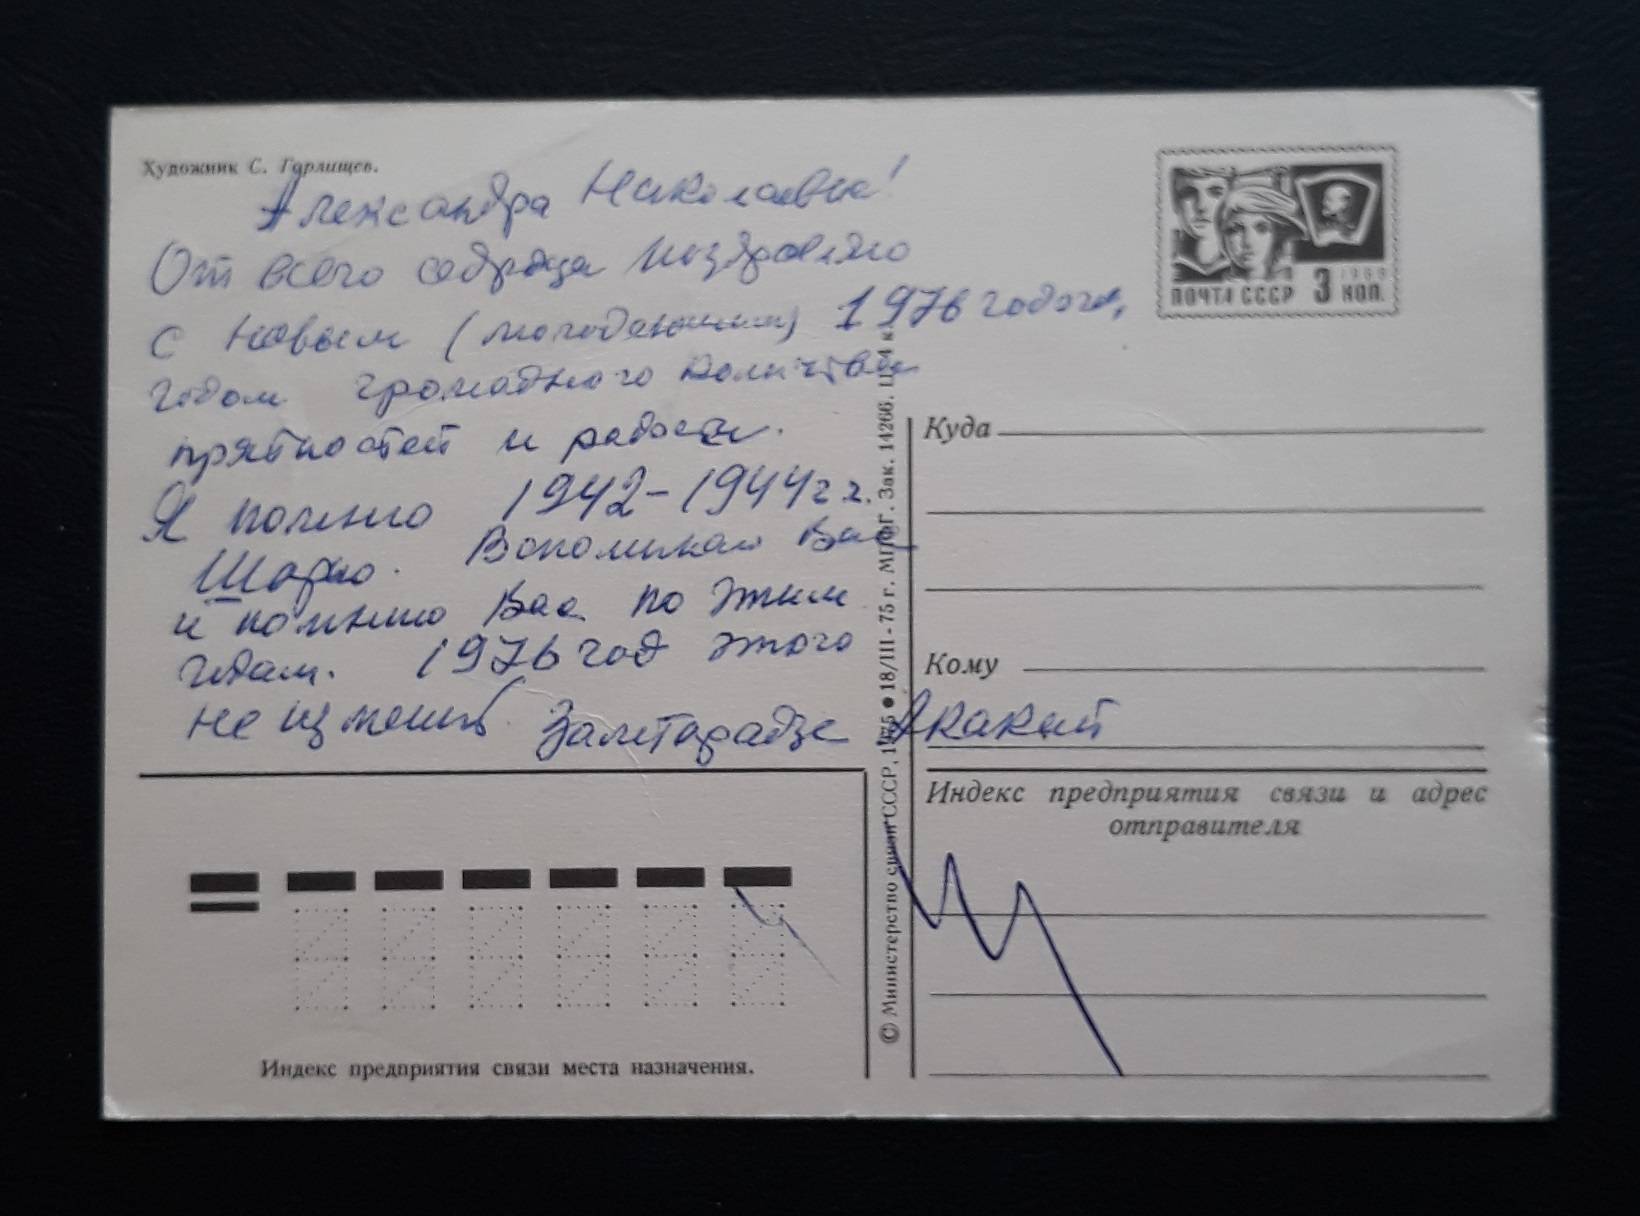 Художник С. Горлищев.
Александра Николаевна!
От всего сердца поздравляю
с новым (молоденьким) 1976 годом,
годом громадного количества
приятностей и радости.
Я помню 1942-1944 г.г.
Шарью. Вспоминаю Вас
и помню Вас по этим
годам. 1976 год этого
не изменит Залтарадзе Акакий
ПОЧТА СССР 3 КОП.
1968
Куда
Кому
Индекс предприятия связи и адрес
отправителя
© Министерство связи СССР, 1975 ● 18/III-75 г. МПФГ. Зак. 14266. Ц. 4 к.
Индекс предприятия связи места назначения.